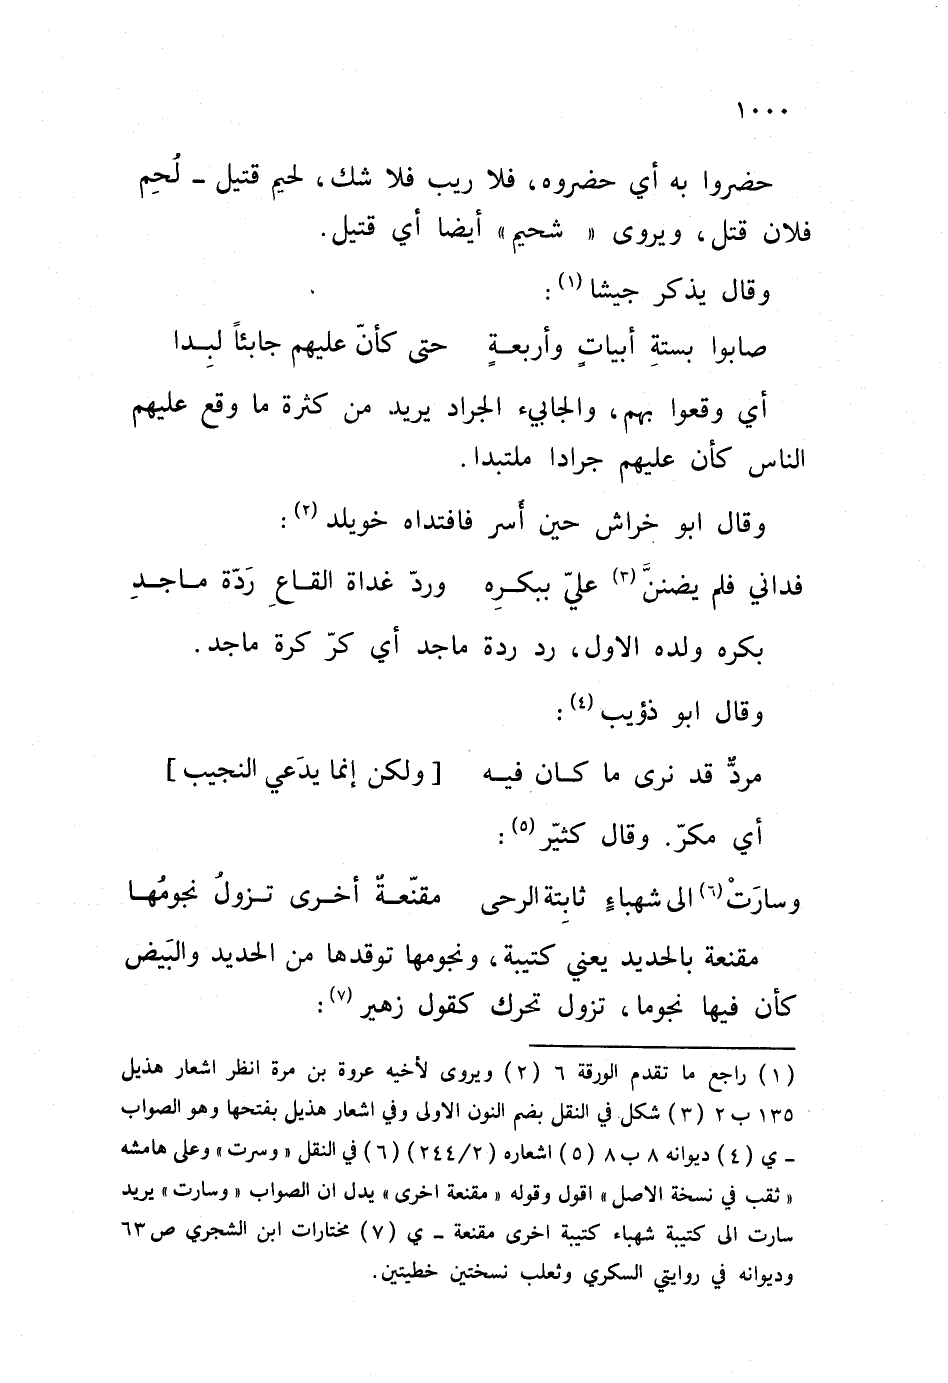 ١٠٠٠
حضروا به أي حضروه، فلا ريب فلا شك، لحيم قتيل ـ لُحِم
فلان قتل، ويروى « شحيم» أيضا أي قتيل.
وقال يذكر جيشا (١) :
صابوا بستةِ أبياتٍ وأربعـةٍ حتى كأنّ عليهم جابئاً لِبـدا
أي وقعوا بهم، والجابيء الجراد يريد من كثرة ما وقع عليهم
الناس كأن عليهم جرادا ملتبدا.
وقال ابو خراش حين أَسر فافتداه خويلد (٢) :
فداني فلم يضننَّ (٣) عليّ ببكـرِه وردّ غداة القـاعِ رَدّة مـاجـدِ
بكره ولده الاول، رد ردة ماجد أي كرّ كرة ماجد.
وقال ابو ذؤيب (٤) :
مردٌّ قد نرى ما كـان فيـه [ولكن إنما يدَعي النجيب]
أي مكرّ. وقال كثيّر (٥) :
وسارَتْ (٦) الى شهباءٍ ثابِتة الرحى مقنّعـةٌ أخـرى تـزولُ نجومُهـا
مقنعة بالحديد يعني كتيبة، ونجومها توقدها من الحديد والبَيض
كأن فيها نجوما، تزول تحرك كقول زهير (٧) :
(١) راجع ما تقدم الورقة ٦ (٢) ويروى لأخيه عروة بن مرة انظر اشعار هذيل
١٣٥ ب ٢ (٣) شكل في النقل بضم النون الاولى وفي اشعار هذيل بفتحها وهو الصواب
ـ ي (٤) ديوانه ٨ ب ٨ (٥) اشعاره (٢/ ٢٤٤) (٦) في النقل «وسرت» وعلى هامشه
« ثقب في نسخة الاصل» اقول وقوله « مقنعة اخرى» يدل ان الصواب «وسارت» يريد
سارت الى كتيبة شهباء كتيبة اخرى مقنعة ـ ي (٧) مختارات ابن الشجري ص ٦٣
وديوانه في روايتي السكري وثعلب نسختين خطيتين.